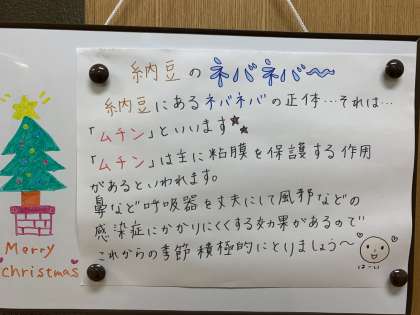 納豆のネバネバ〜
納豆にあるネバネバの正体…それは…
「ムチン」といいます★★
「ムチン」は主に粘膜を保護する作用
があるといわれます。
鼻など呼吸器を丈夫にして風邪などの
感染症にかかりにくくする効果があるので
これからの季節積極的にとりましょう〜
はーい
Merry
christmas